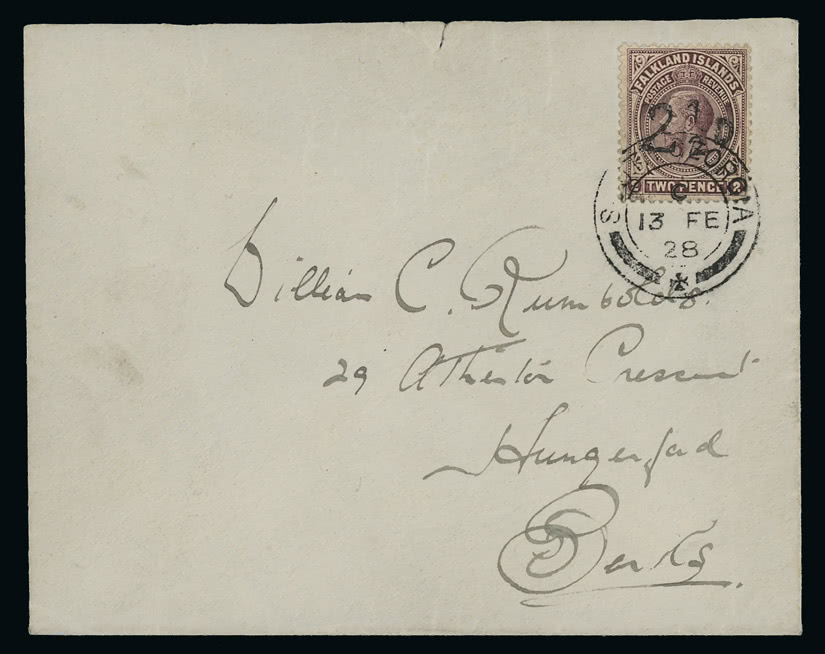 FALKLAND ISLANDS
POSTAGE REVENUE
2½
2 TWO PENCE 2
S. GEORGIA
C
13 FE
28
William C. Rumbolds.
29 Atherton Crescent
Hungerford
Berks.